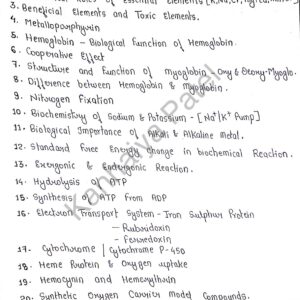 3. Beneficial Elements and Toxic Elements.
4. Metalloporphyrin
5. Hemoglobin - Biological Function of Hemoglobin.
6. Cooperative Effect
7. Structure and Function of myoglobin - Oxy & Deoxy-Myoglo.
8. Difference between Hemoglobin & myoglobin.
9. Nitrogen Fixation
10. Biochemistry of Sodium & Potassium - [Na⁺/K⁺ Pump]
11. Biological Importance of Alkali & Alkaline Metal.
12. Standard Free Energy change in biochemical Reaction.
13. Exergonic & Endergonic Reaction.
14. Hydrolysis of ATP
15. Synthesis of ATP from ADP
16. Electron Transport System - Iron Sulphur Protein
- Rubridoxin
- Ferredoxin
17- Cytochrome | Cytochrome P-450
18. Heme Protein & Oxygen uptake
19. Hemocynin and Hemerythrin
20. Synthetic Oxygen Carrier Model Compounds.
Kanhaiya Patel